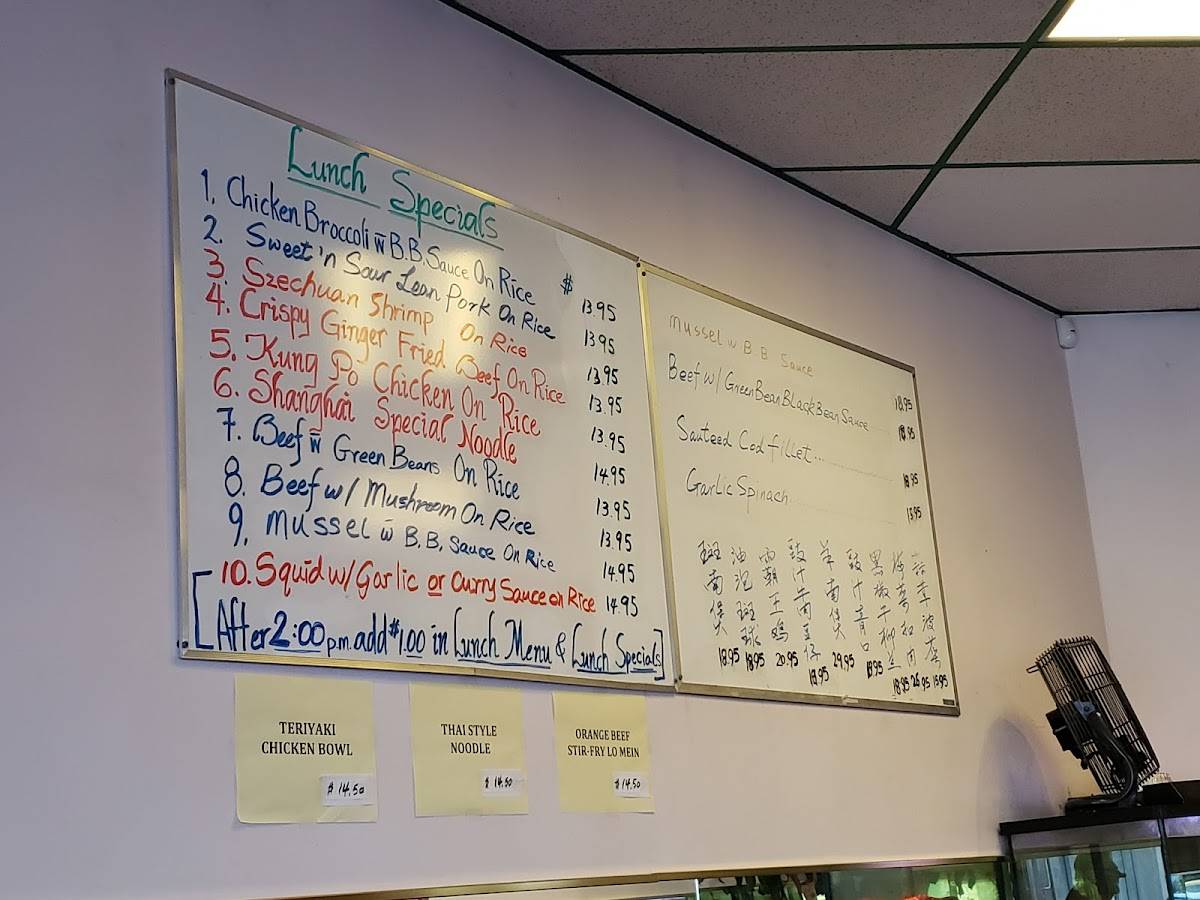 Lunch Specials
1. Chicken Broccoli w̄ B.B. Sauce On Rice $ 13.95
2. Sweet 'n Sour Lean Pork On Rice 13.95
3. Szechuan Shrimp On Rice 13.95
4. Crispy Ginger Fried Beef On Rice 13.95
5. Kung Po Chicken On Rice 13.95
6. Shanghai Special Noodle 14.95
7. Beef w̄ Green Beans On Rice 13.95
8. Beef w/ Mushroom On Rice 13.95
9. Mussel w̄ B.B. Sauce On Rice 14.95
10. Squid w/ Garlic or Curry Sauce on Rice 14.95
[After 2:00 p.m. add $1.00 in Lunch Menu & Lunch Specials]
Mussel w B B Sauce 18.95
Beef w/ Green Bean Black Bean Sauce 18.95
Sauteed Cod fillet 18.95
Garlic Spinach 15.95
斑南煲 18.95
油泡斑球 18.95
20.95
豉汁 18.95
羊南煲 29.95
豉汁青口 18.95
黑椒牛柳 18.95
26.95
15.95
TERIYAKI
CHICKEN BOWL
$ 14.50
THAI STYLE
NOODLE
$ 14.50
ORANGE BEEF
STIR-FRY LO MEIN
$ 14.50